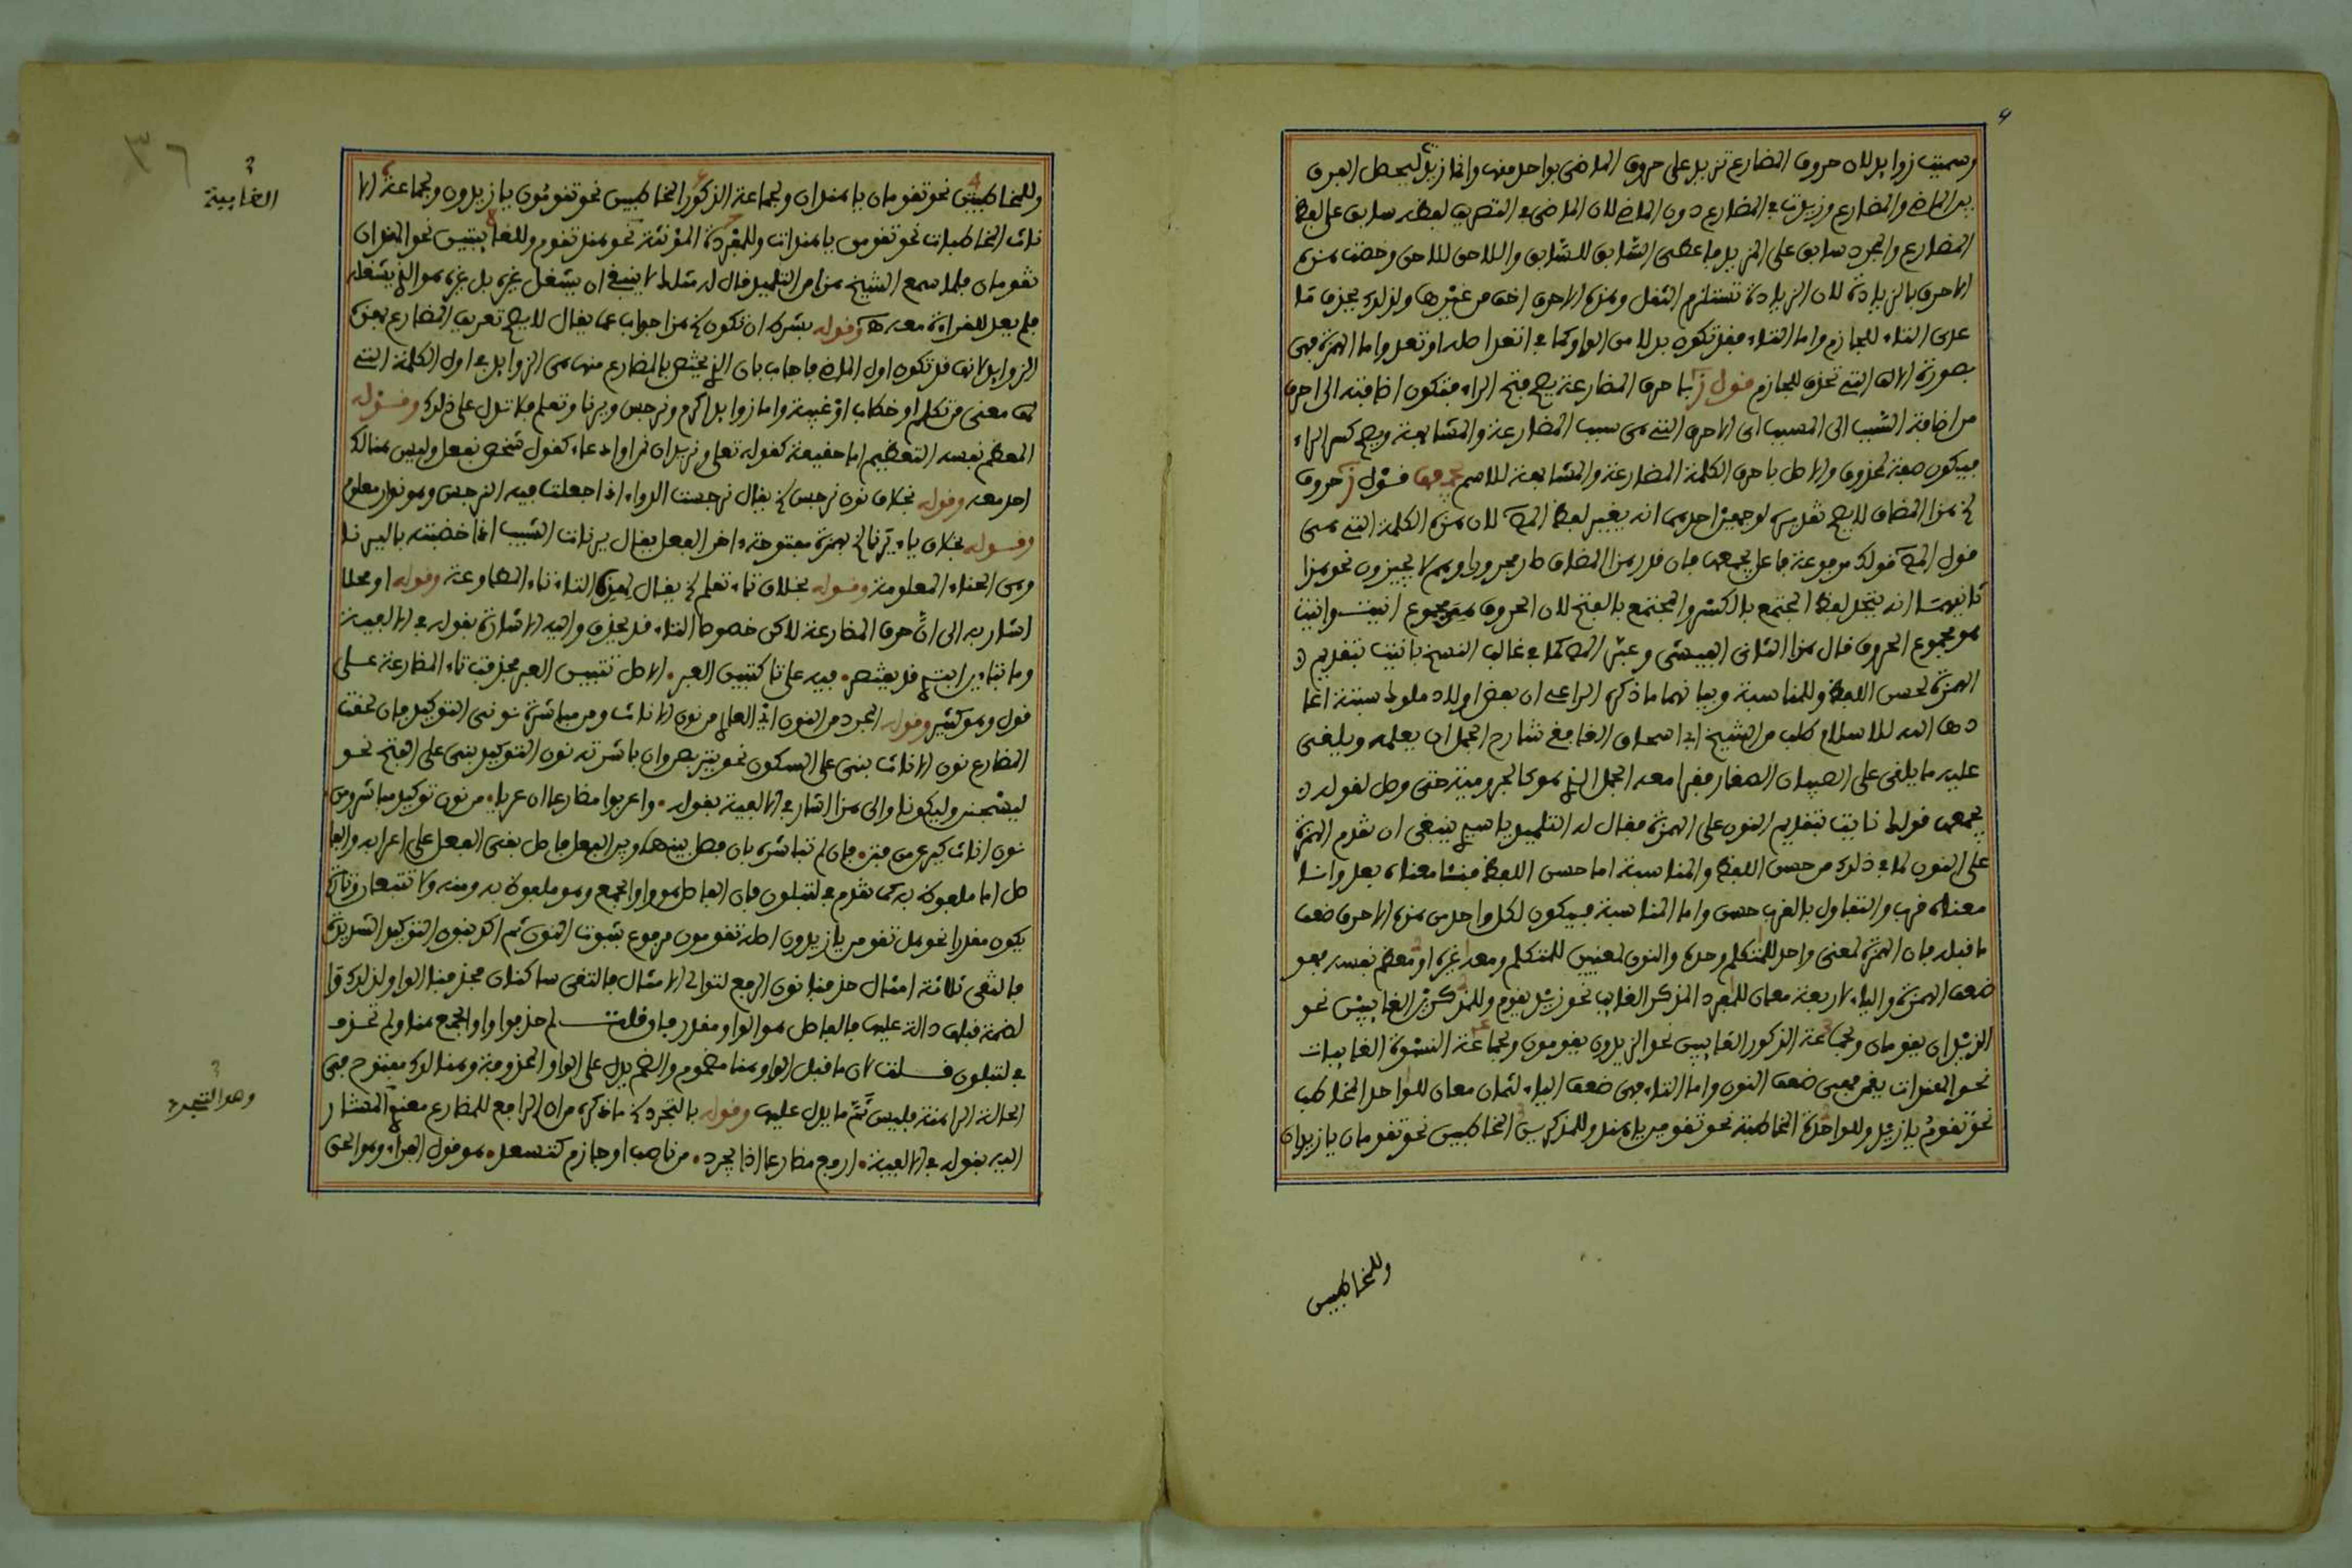 وسميت زوايد لان حروف المضارع تزيد على حروف الماضي بواحد منها وانما زيد ليحصل الفرق
بين الماضي والمضارع وزيدت في المضارع دون الماضي لان الماضي في التصريف لفظه سابق على لفظ
المضارع والمجرد سابق على المزيد فاعطى السابق للسابق واللاحق للاحق وخصت هذه
الاحرف بالزيادة لان الزيادة تستلزم الثقل وهذه الاحرف اخف من غيرها ولذلك
على التاء للجازم واما التاء فقد تكون بدلا من الواو كما في اتعد اصله اوتعد واما الهمزة فهي
بصورة الالف التي تحذف للجازم قول ز باحرف المضارعة يصح فتح الراء فتكون اضافته الى احرف
من اضافة السبب الى المسبب اي الاحرف التي هي سبب المضارعة والمشابهة ويصح كسر الراء
فيكون صفة لمحذوف والاصل باحرف الكلمة المضارعة والمشابهة للاسم قول ز حروف
هذا المضاف لا يصح تقديره لوجهين احدهما انه يغير لفظ المص لان هذه الكلمة التي هي
قول المص قولك مرفوعة فاعل يجمعها فان قدر هذا المضاف صار مجرورا وهم لا يجيزون نحو هذا
ثانيهما انه يختل لفظ المجتمع بالكسر والمجتمع بالفتح لان الحروف مجموع انيت وانيت
هو مجموع الحروف قال هذا الثاني الفيشي وعبر المص كما في غالب النسخ بانيت بتقديم
الهمزة لحسن اللفظ وللمناسبة وبيانهما ما ذكره الراعي ان بعض اولاد ملوك سبتة اعا
دها الله للاسلام طلب من الشيخ ابي اسحاق الغافقي شارح الجمل ان يعلمه ويلقي
عليه ما يلقى على الصبيان الصغار فقرا معه الجمل الذي هو كالجرومية حتى وصل لقوله
يجمعها قولك نايت بتقديم النون على الهمزة فقال له التلميذ يا سيدي ينبغي ان تقدم الهمزة
على النون لما في ذلك من حسن اللفظ والمناسبة اما حسن اللفظ فنئا معناه بعد وانا
معناه قرب والتفاول بالقرب حسن واما المناسبة فيكون لكل واحد من هذه الاحرف ضعف
ما قبله فان الهمزة لمعنى واحد للمتكلم وحده والنون لمعنيين للمتكلم ومعه غيره او معظم نفسه فهو
ضعف الهمزة والياء لاربعة معان للمفرد المذكر الغايب نحو زيد يقوم وللمذكرين الغايبين نحو
الزيدان يقومان ولجماعة الذكور الغايبين نحو الزيدون يقومون ولجماعة النسوة الغايبات
نحو الهندات يقمن فهي ضعف النون واما التاء فهي ضعف الياء لثمان معان للواحد المخاطب
نحو تقوم يا زيد وللواحدة المخاطبة نحو تقومين يا هند وللمذكرين المخاطبين نحو تقومان يا زيدان
وللمخاطبين
٣٦
وللمخاطبتين نحو تقومان يا هندان ولجماعة الذكور المخاطبين نحو تقومون يا زيدون ولجماعة الا
ناث المخاطبات نحو تقومن يا هندات وللمفردة المؤنثة نحو هند تقوم وللغايبتين نحو الهندان
تقومان فلما سمع الشيخ هذا من التلميذ قال له مثلك لا ينبغي ان يشغل غيره بل غيره هو الذي يشغله
فلم يعد للقراءة معه وقوله بشرط ان تكون هذا جواب عما يقال لا يصح تعريف المضارع بهذه
الزوايد لانها قد تكون اول الماضي فاجاب بان الذي يختص بالمضارع منها هي الزوايد في اول الكلمة التي
لها معنى من تكلم او خطاب او غيبة واما زوايد اكرم ونرجس ويرنا وتعلم فلا تدل على ذلك وقوله
المعظم نفسه التعظيم اما حقيقة كقوله تعلى ونريد ان نمن او ادعاء كقول شخص نفعل وليس هنالك
احد معه وقوله بخلاف نون نرجس يقال نرجست الدواء اذا جعلت فيه النرجس وهو نوار معلوم
وقوله بخلاف ياء يرنا بهمزة مفتوحة اخر الفعل يقال يرنات الشيب اذا خضبته باليرنا
وهي الحناء المعلومة وقوله بخلاف تاء تعلم يقال لهذه التاء تاء المطاوعة وقوله او محلا
اشار به الى ان حرف المضارعة لاكن خصوص التاء قد يحذف واليه الاشارة بقوله في الالفية
وما بتاءين ابتدي قد يقتصر • فيه على تا كتبين العبر • الاصل تتبين العبر فحذفت تاء المضارعة على
قول وهو كثير وقوله المجرد من النون اي الخالي من نون الاناث ومن مباشرة نوني التوكيد فان لحقت
المضارع نون الاناث بني على السكون نحو يتربصن وان باشرته نون التوكيد بني على الفتح نحو
ليسجنن وليكونا والى هذا اشار في الالفية بقوله • واعربوا مضارعا ان عريا • من نون توكيد مباشر ومن
نون اناث كيرعن من فتن • فان لم تباشره بان فصل بينها وبين الفعل فاصل بقي الفعل على اعرابه والفا
صل اما ملفوظ به كما تقدم في لتبلون فان الفاصل هو واو الجمع وهو ملفوظ به ومنه ولا تتبعان وتارة
يكون مقدرا نحو هل تقومن يا زيدون اصله تقومون مرفوع بثبوت النون ثم اكد بنون التوكيد الشديدة
فالتقى ثلاثة امثال حذفنا نون الرفع لتوالي الامثال فالتقى ساكنان فحذفنا الواو لذلك
لضمة قبلها دالة عليها فالفاصل هو الواو مقدر فان قلت لم حذفوا واو الجمع هنا ولم تحذف
في لتبلون قلت لان ما قبل الواو هنا مضموم والضم يدل على الواو المحذوفة وهنالك مفتوح ففي
الحالة الراهنة فليس ثم ما يدل عليها وقوله بالتجرد ما ذكره من ان الرافع للمضارع المشار
اليه بقوله في الالفية • ارفع مضارعا اذا يجرد • من ناصب او جازم كتسعد • هو قول الفراء وهو الحق
الغايبة
وهو التجرد